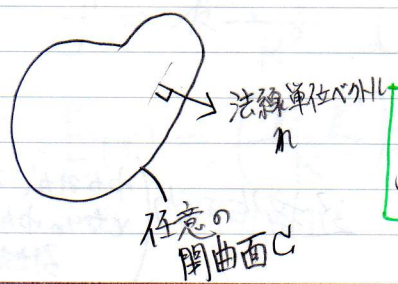 法線単位ベクトル
n
任意の
閉曲面C